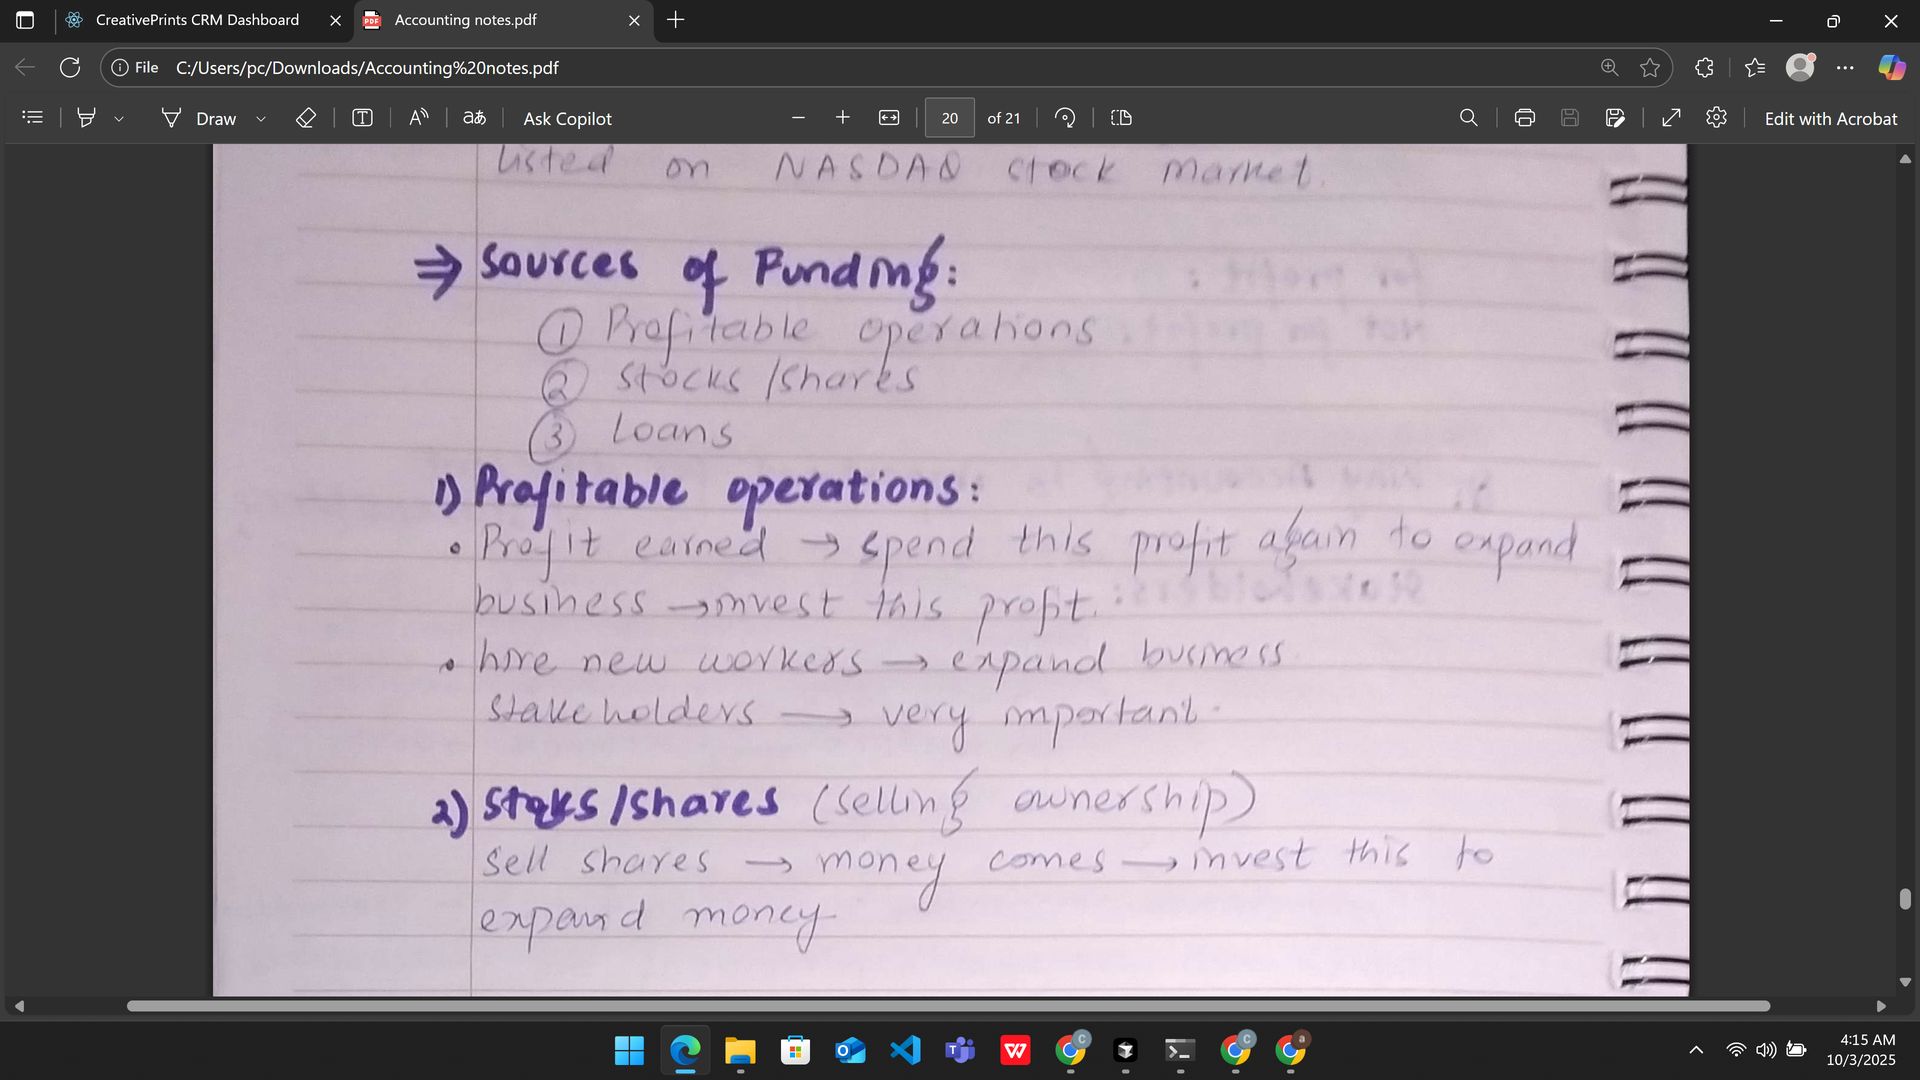 CreativePrints CRM Dashboard
Accounting notes.pdf
File C:/Users/pc/Downloads/Accounting%20notes.pdf
Draw
aあ
Ask Copilot
20 of 21
Edit with Acrobat
Listed on NASDAQ stock market.
⇒ Sources of Funding:
① Profitable operations
② Stocks /shares
③ Loans
1) Profitable operations:
• Profit earned → spend this profit again to expand
business → invest this profit.
• hire new workers → expand business
Stakeholders → very important.
2) Stoks/shares (selling ownership)
Sell shares → money comes → invest this to
expand money
4:15 AM
10/3/2025